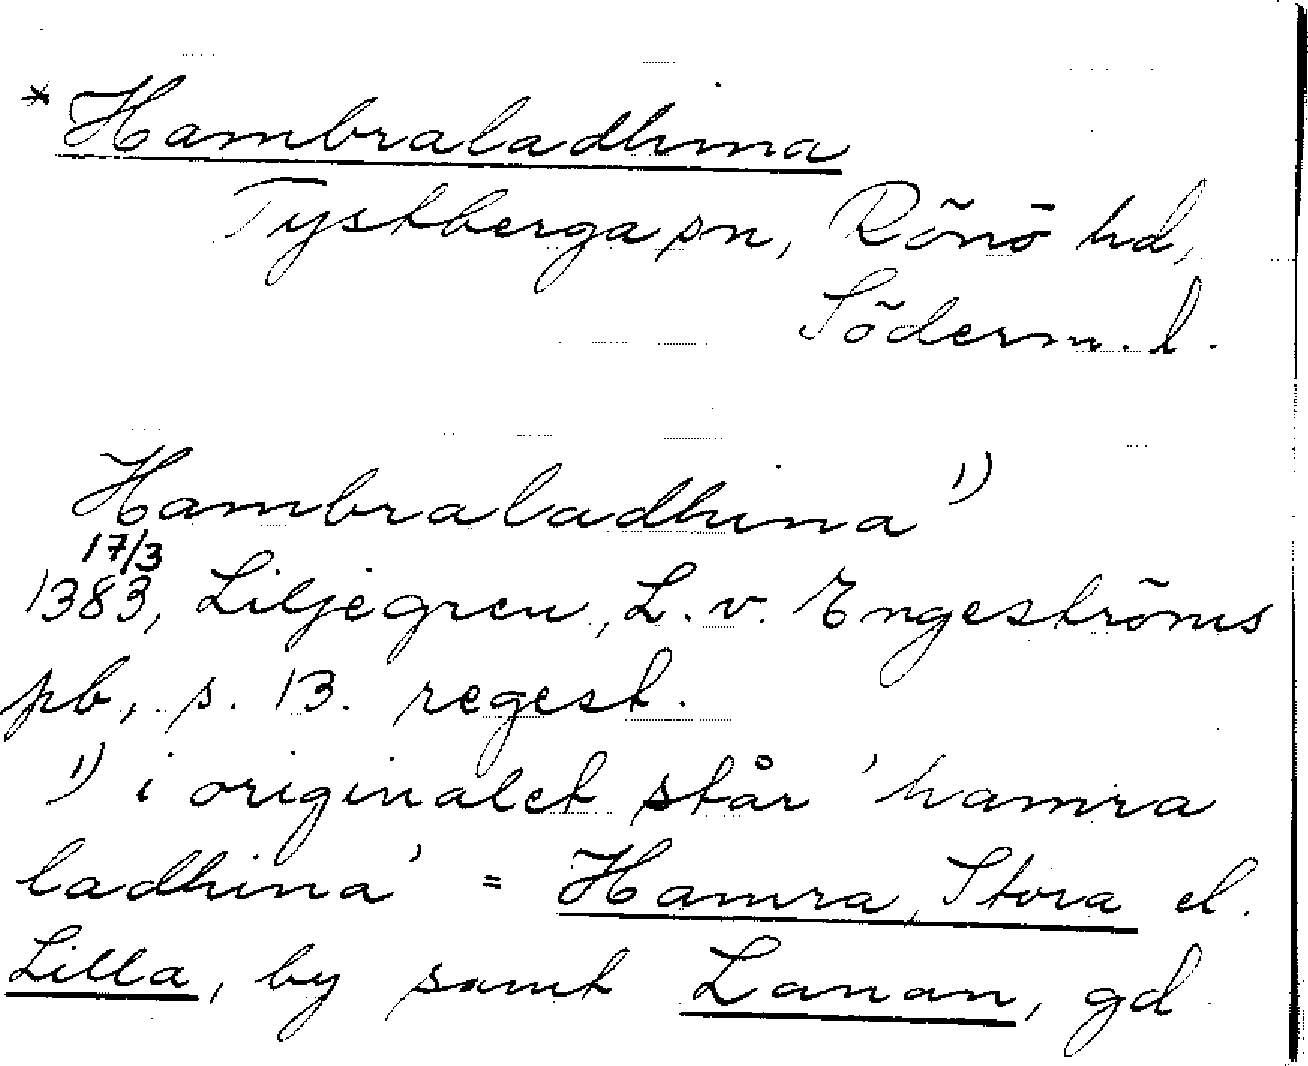 * Hambraladhina
Tystberga sn, Rönö hd,
Söderm. l.
Hambraladhina 1)
17/3
1383, Liljegren, L. v. Engeströms
pb, s. 13. regest.
1) i originalet står 'hamra
ladhina' = Hamra, Stora el.
Lilla, by samt Lanan, gd